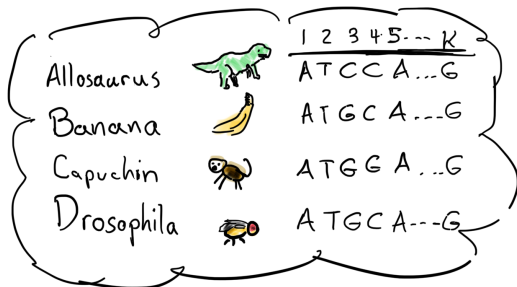 1 2 3 4 5--- K
Allosaurus ATCCA...G
Banana ATGCA...G
Capuchin ATGGA...G
Drosophila ATGCA---G